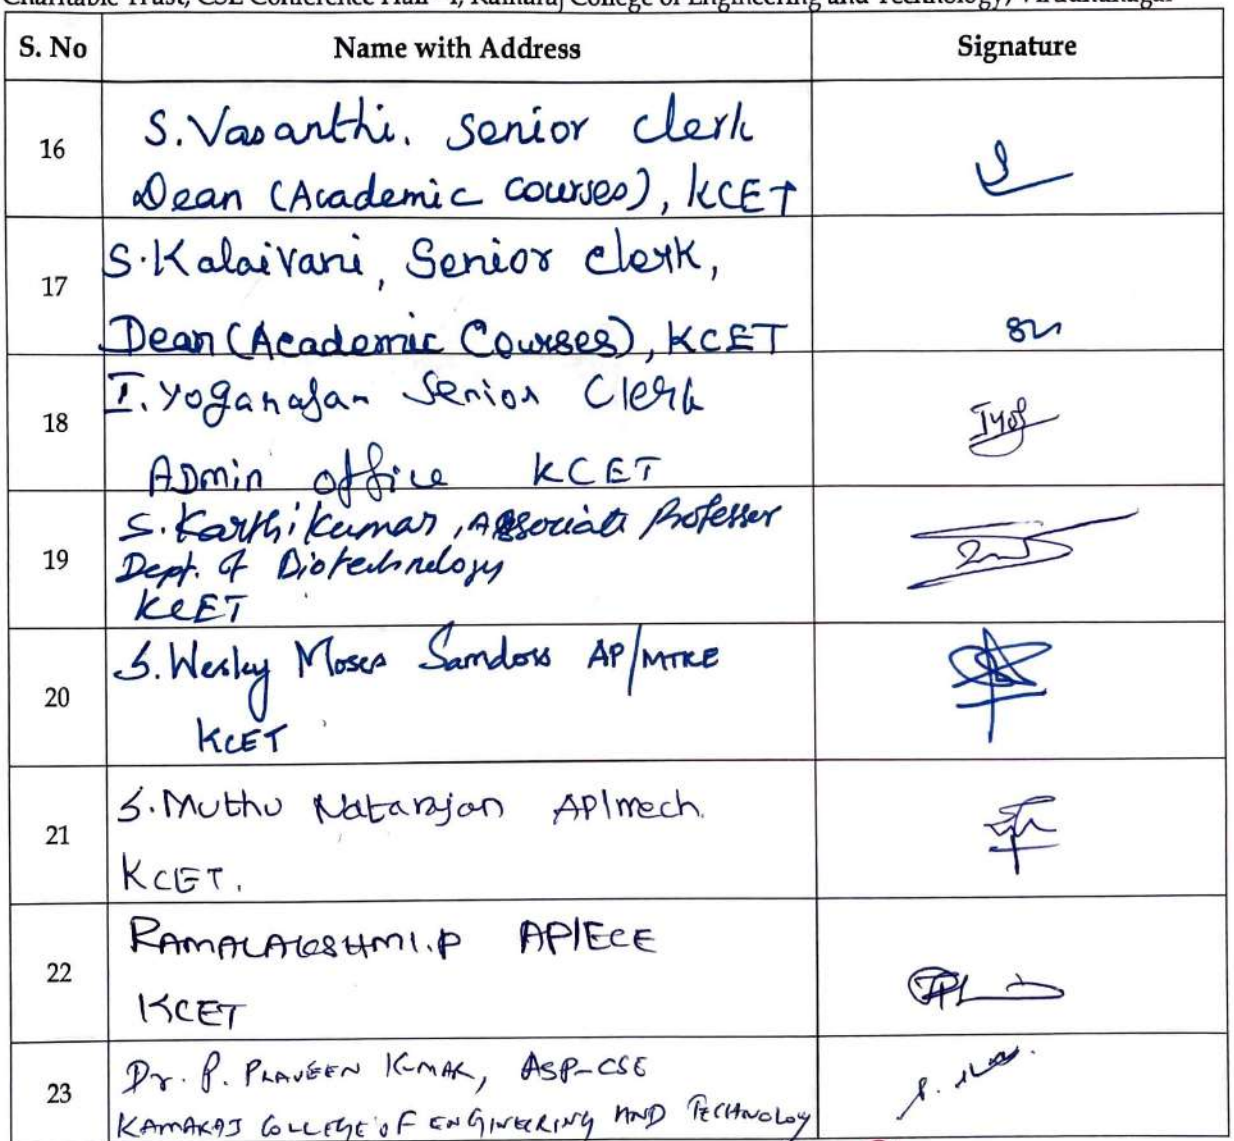 Charitable Trust, CSE Conference Hall - I, Kamaraj College of Engineering and Technology, Virudhunagar
S. No Name with Address Signature
16 S.Vasanthi. Senior clerk
Dean (Academic courses), KCET
17 S.Kalaivani, Senior clerk,
Dean (Academic Courses), KCET
18 I.Yoganajan Senior Clerk
ADmin office KCET
19 S.Karthikumar, Associate Professer
Dept. of Biotechnology
KCET
20 S.Wesley Moses Samdoss AP/MTRE
KCET
21 S.Muthu Natarajan AP/mech.
KCET.
22 RAMALAKSHMI.P AP/ECE
KCET
23 Dr. P. PRAVEEN KUMAR, ASP-CSE
KAMARAJ COLLEGE OF ENGINEERING AND TECHNOLOGY